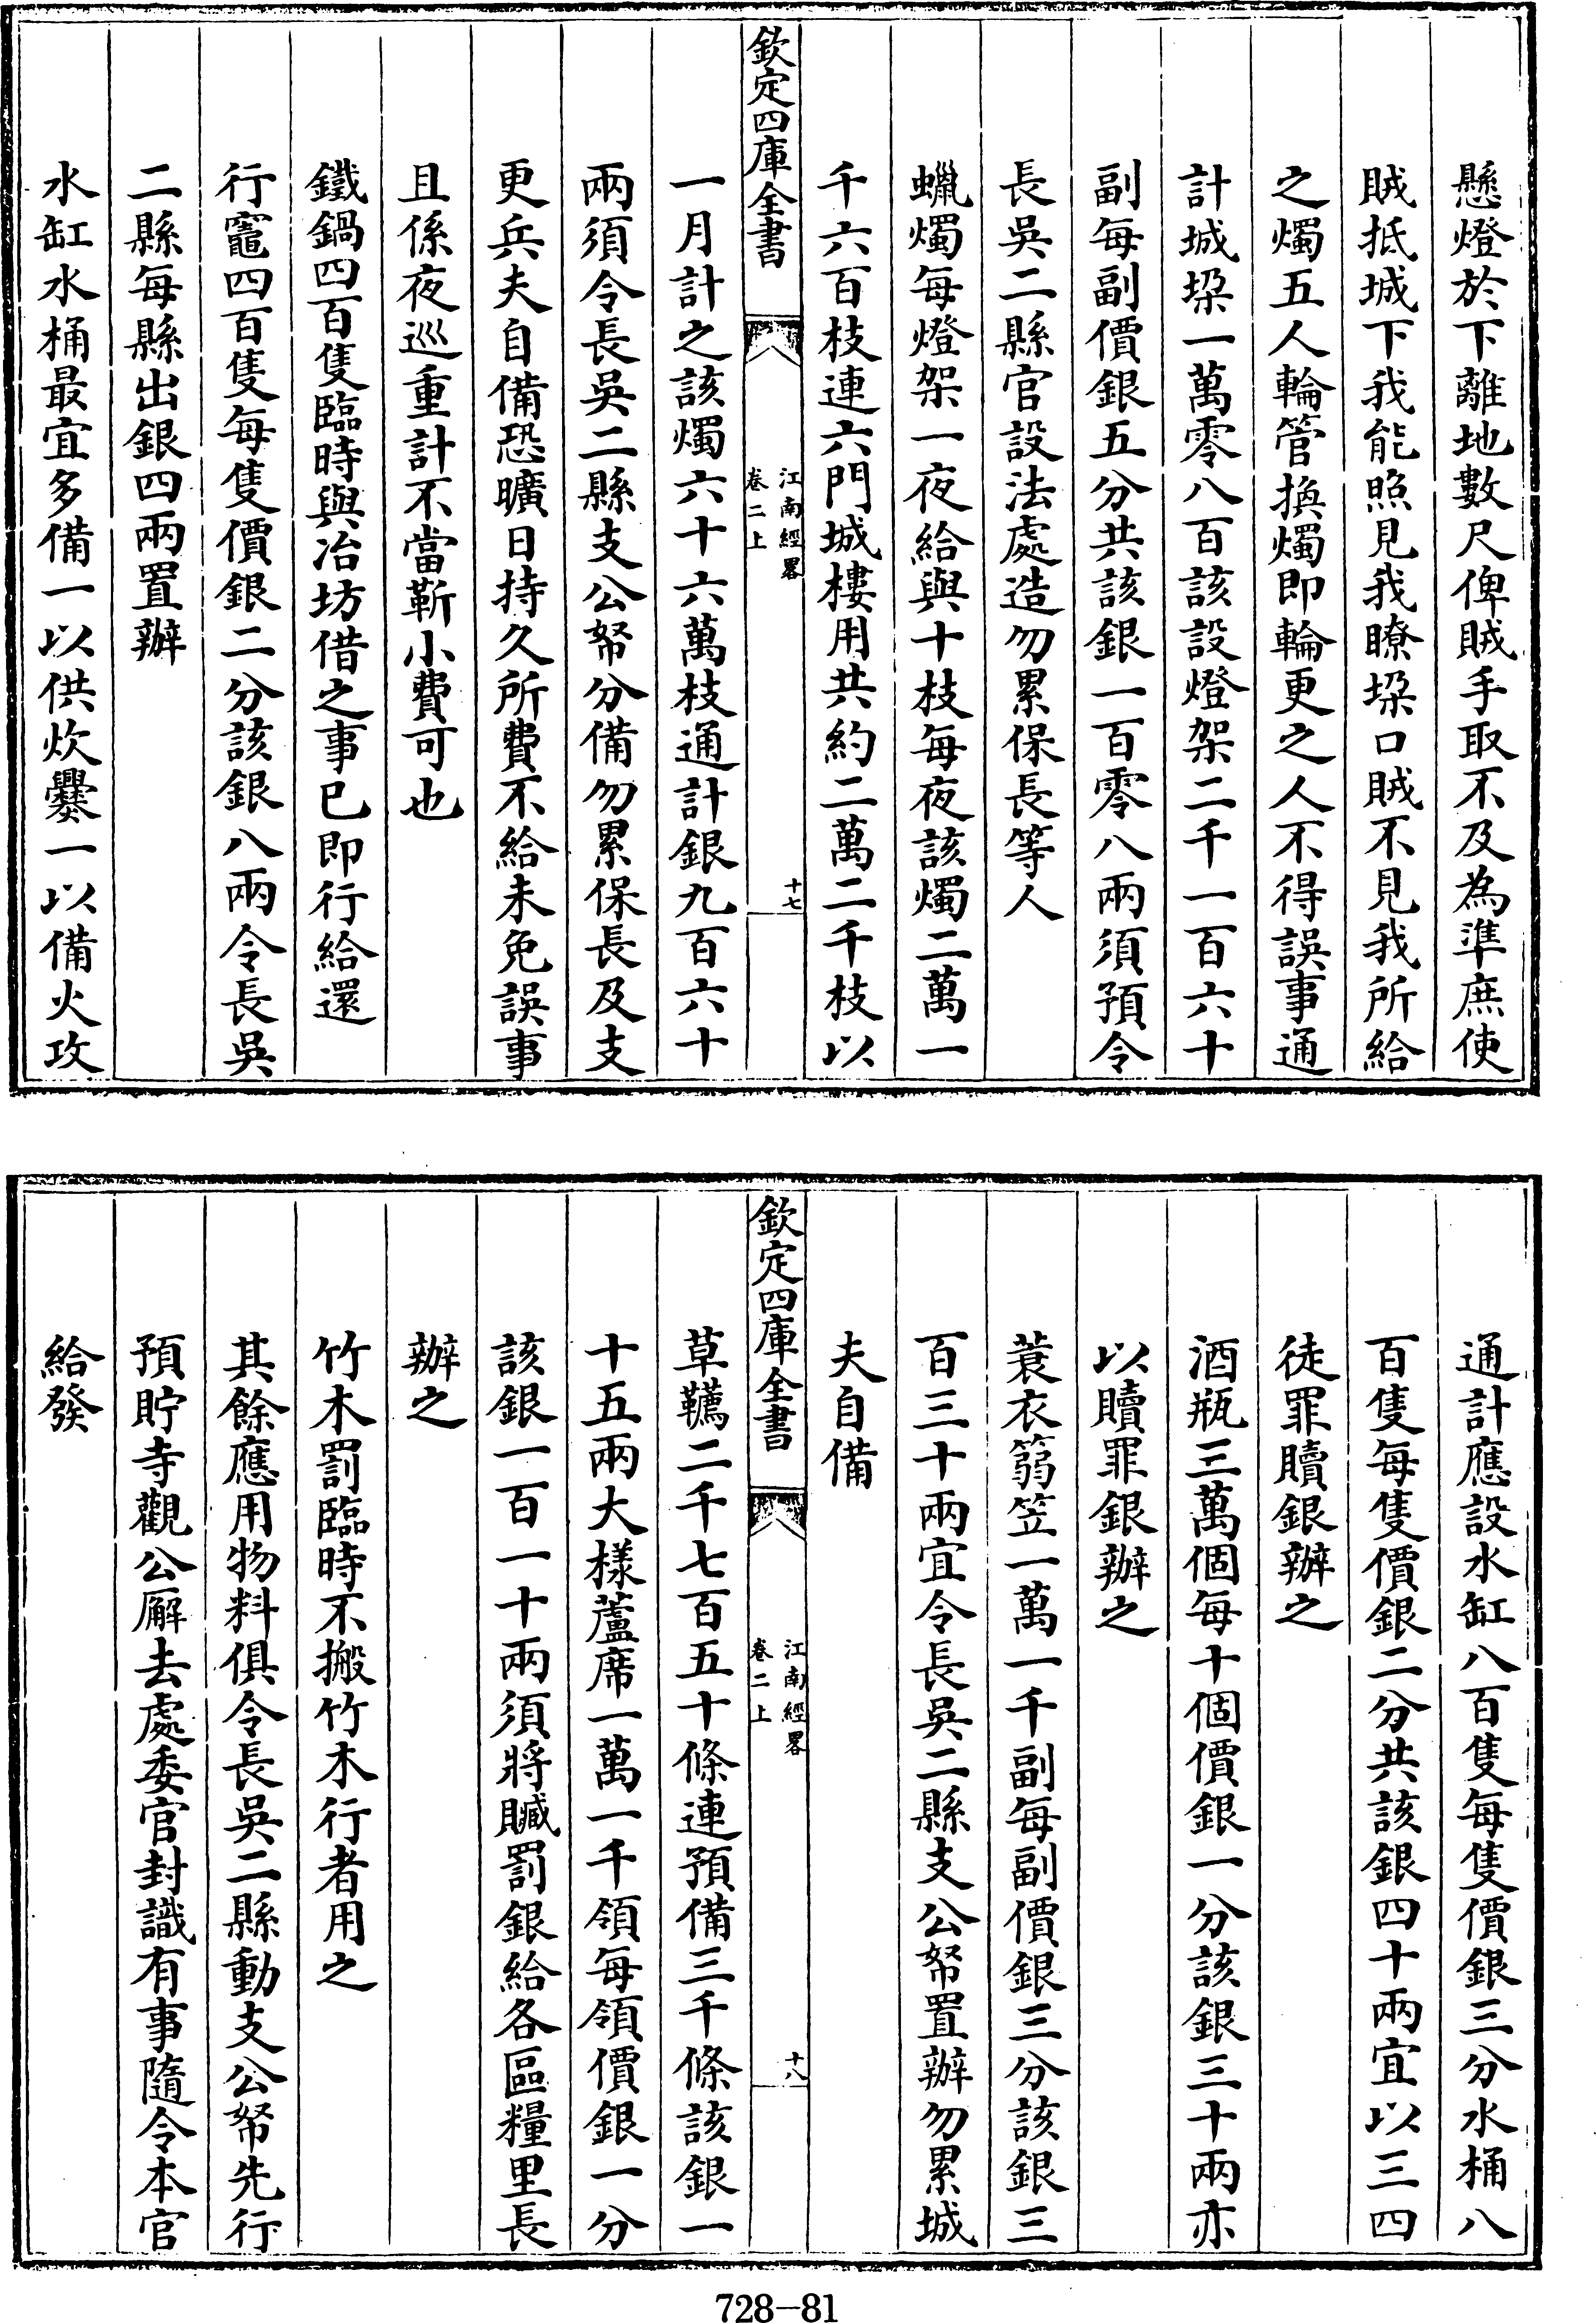 懸燈於下離地數尺俾賊手取不及為準庶使
賊抵城下我能照見我瞭垜口賊不見我所給
之燭五人輪管換燭即輪更之人不得誤事通
計城垜一萬零八百該設燈架二千一百六十
副每副價銀五分共該銀一百零八兩須預令
長吳二縣官設法處造勿累保長等人
蠟燭每燈架一夜給與十枝每夜該燭二萬一
千六百枝連六門城樓用共約二萬二千枝以
欽定四庫全書
江南經畧
卷二上
十七
一月計之該燭六十六萬枝通計銀九百六十
兩須令長吳二縣支公帑分備勿累保長及支
更兵夫自備恐曠日持久所費不給未免誤事
且係夜巡重計不當靳小費可也
鐵鍋四百隻臨時與冶坊借之事已即行給還
行竈四百隻每隻價銀二分該銀八兩令長吳
二縣每縣出銀四兩置辦
水缸水桶最宜多備一以供炊爨一以備火攻
通計應設水缸八百隻每隻價銀三分水桶八
百隻每隻價銀二分共該銀四十兩宜以三四
徒罪贖銀辦之
酒瓶三萬個每十個價銀一分該銀三十兩亦
以贖罪銀辦之
蓑衣篛笠一萬一千副每副價銀三分該銀三
百三十兩宜令長吳二縣支公帑置辦勿累城
夫自備
欽定四庫全書
江南經畧
卷二上
十八
草韉二千七百五十條連預備三千條該銀一
十五兩大樣蘆席一萬一千領每領價銀一分
該銀一百一十兩須將贓罰銀給各區糧里長
辦之
竹木罰臨時不搬竹木行者用之
其餘應用物料俱令長吳二縣動支公帑先行
預貯寺觀公廨去處委官封識有事隨令本官
給發
728-81